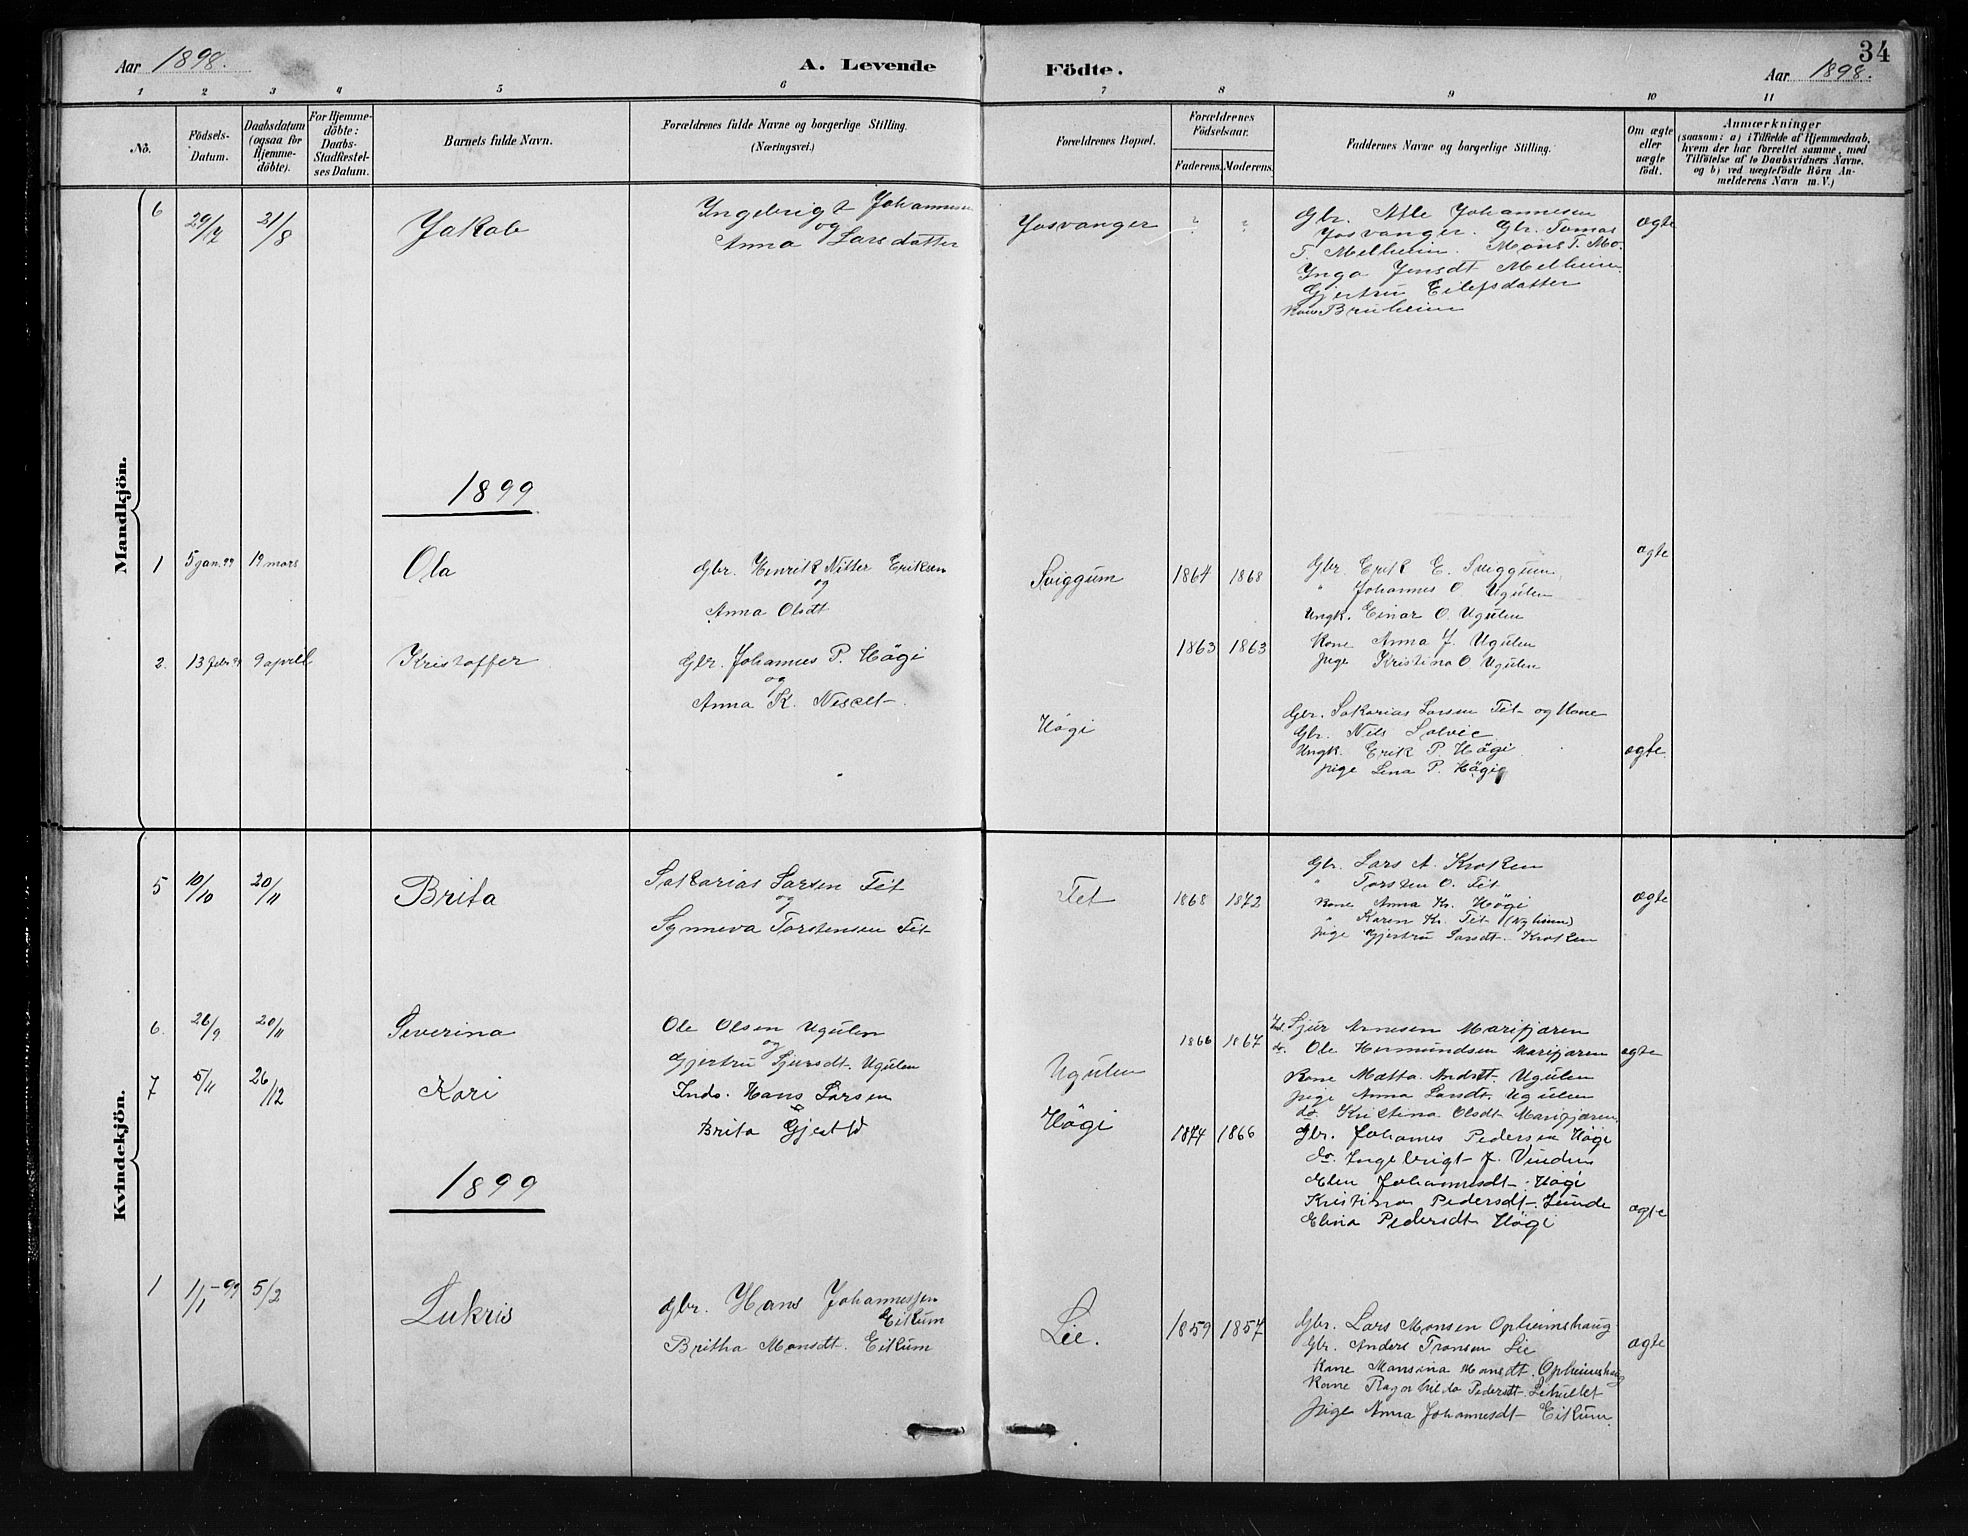 34
Aar 1898.
A. Levende Födte.
Aar 1898.
1 2 3 4 5 6 7 8 9 10 11
No.
Födsels-Datum.
Daabsdatum (ogsaa for Hjemme-döbte).
For Hjemme-döbte: Daabs-Stadfæstel-ses Datum.
Barnets fulde Navn.
Forældrenes fulde Navne og borgerlige Stilling.
(Næringsvei.)
Forældrenes Bopæl.
Forældrenes Födselsaar.
Faderens. Moderens.
Faddernes Navne og borgerlige Stilling.
Om ægte eller uægte födt.
Anmærkninger
(saasom: a) i Tilfælde af Hjemmedaab,
hvem der har forrettet samme, med
Tilföielse af to Daabsvidners Navne,
og b) ved uægtefödte Börn An-
melderens Navn m. V.)
Mandkjön.
6 29/7 21/8 Jakob
Ingebrigt Johannesen
og
Anna Larsdatter
Josvanger ? ?
Gbr. Atle Johannesen
Josvanger. Gbr. Tomas
T. Melheim. Mons T. Mo.
Inga Jensdt Melheim
Gjertru Eilefsdatter
Kone Bruheim
ægte
1899
1 5 jan. 99 19 mars Ola
Gbr. Henrik Nitter Eriksen
og
Anna Olsdt
Sviggum 1864 1868
Gbr. Erik E. Sviggum
" Johannes O. Ugulen
Ungk. Einar O. Ugulen
Kone Anna J. Ugulen
Pige Kristina O. Ugulen
ægte
2. 13 febr 99 9 april Kristoffer
Gbr. Johannes P. Högi
og
Anna K. Neset
Högi 1863 1863
Gbr. Sakarias Larsen Fet og Kone
Gbr. Nils Solvie
Ungk. Erik P. Högi
Pige Lina P. Högi
ægte
Kvindekjön.
5 10/10 20/11 Brita
Sakarias Larsen Fet
og
Synneva Torstensen Fet
Fet 1868 1872
Gbr. Lars A. Kroken
" Torsten O. Fet
Kone Anna Kr. Högi
" Karen Kr. Fet (Nyheim)
Pige Gjertru Larsdt. Kroken
ægte
6. 26/9 20/11 Severina
Ole Olsen Ugulen
og
Gjertru Sjursdt. Ugulen
Ugulen 1866 1867
Ind. Sjur Arnesen Marifjæren
do. Ole Hermundsen Marifjæren
Kone Matta Andrdt. Ugulen
Pige Anna Larsdt. Ugulen
do. Kristina Olsdt Marifjæren
ægte
7 5/11 26/12 Kari
Inds. Hans Larsen
&
Brita Gjestsd
Högi 1874 1866
Gbr. Johannes Pedersen Högi
do. Ingebrigt J. Vinden
Elen Johannesdt. Högi
Kristina Pedersdt. Lunde
Elina Pedersdt Högi
ægte
1899
1 1/1-99 5/2 Lukris
Gbr. Hans Johannessen
Eikum
Britha Monsdt. Eikum
Lie. 1859 1857
Gbr. Lars Monsen Opheimshaug
Gbr. Anders Tronsen Lie
Kone Mansina Hansdt. Opheimshaug
Kone Ragnhilda Pedersdt. Lihullet
Pige Anna Johannesdt Eikum.
ægte